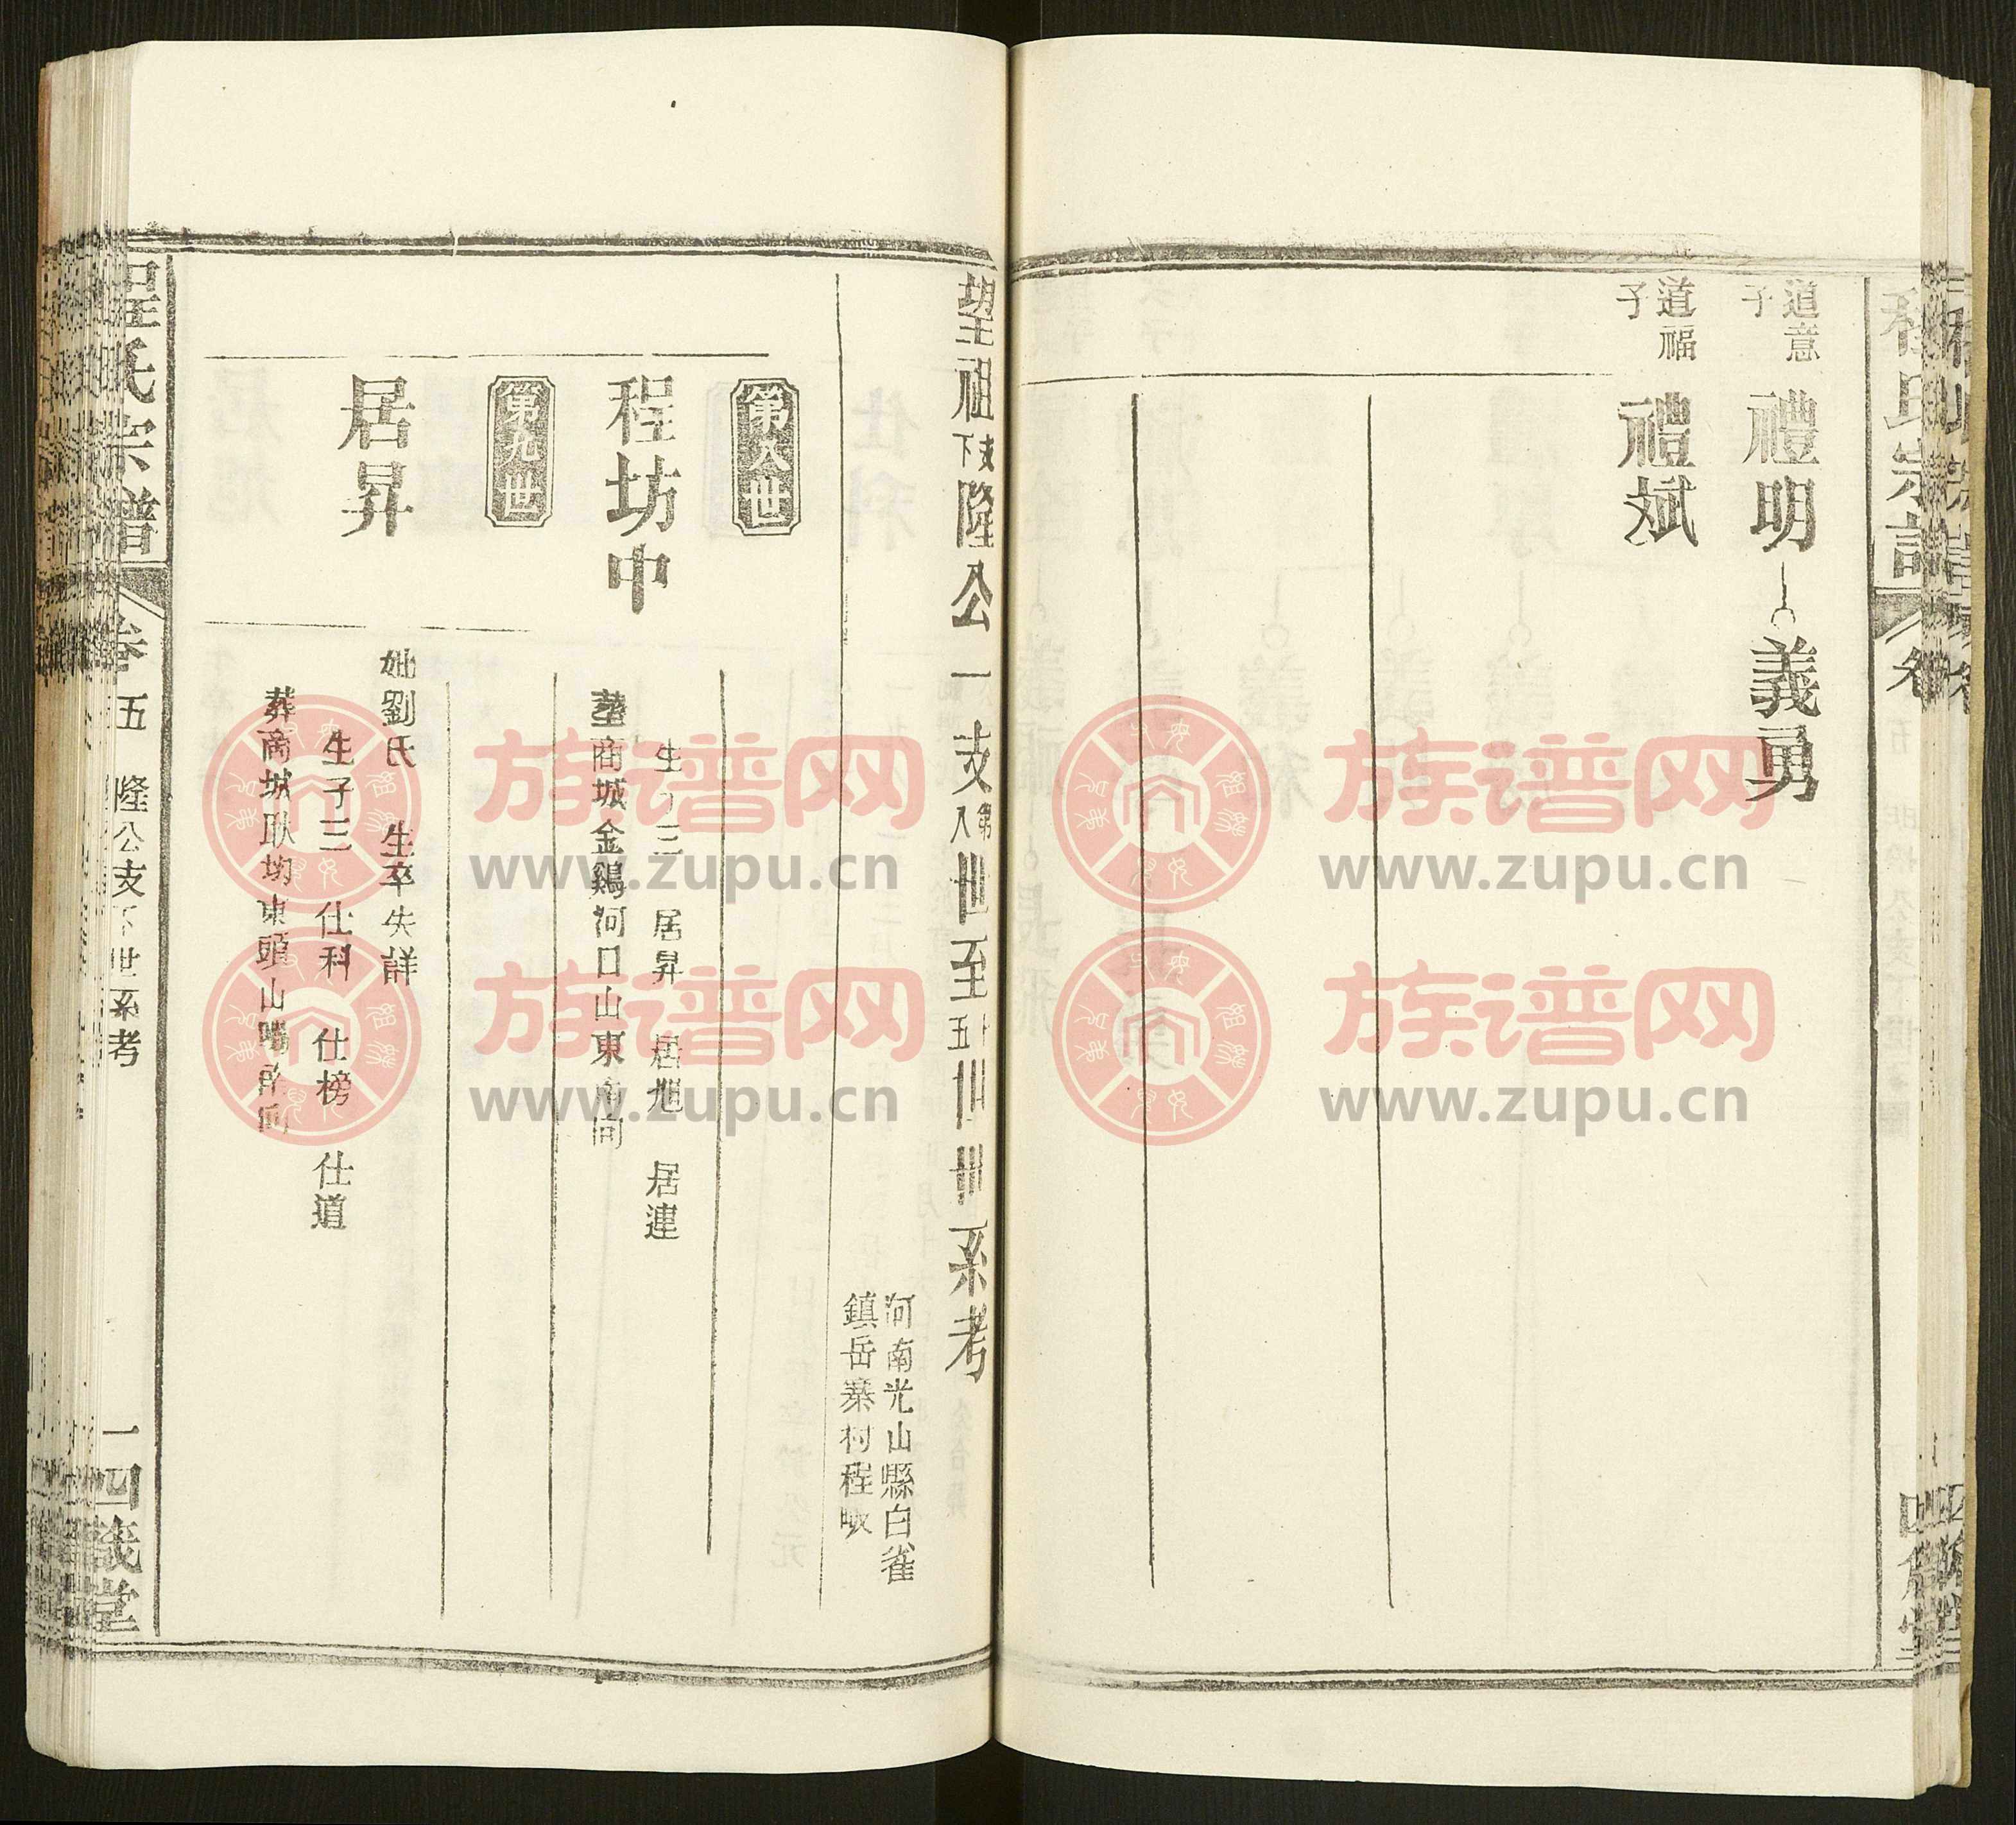 程氏宗譜
道意子
禮明
義勇
道福子
禮斌
望祖支下隆公一支第八世至十五世世系考
河南光山縣白雀
鎮岳寨村程畈
第八世
程坊中
生子三 居昇 居旭 居連
塟商城金鷄河口山東南向
第九世
居昇
妣劉氏 生卒失詳
生子三 仕科 仕榜 仕道
葬商城耿坳東頭山嘴
程氏宗譜
卷五
隆公支下世系考
一
四箴堂
族谱网
www.zupu.cn
族谱网
www.zupu.cn
族谱网
www.zupu.cn
族谱网
www.zupu.cn